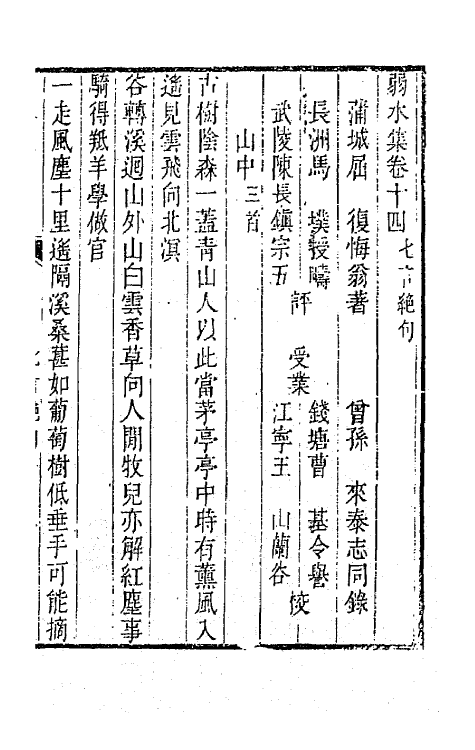 弱水集卷十四 七言絶句
蒲城屈 復悔翁著 曾孫 來泰志同錄
長洲馬 墣授疇 評 受業 錢塘曹 基令譽 校
武陵陳長鎭宗五 江寧王 山蘭谷
山中三首
古樹陰森一蓋靑山人以此當茅亭亭中時有薰風入
遙見雲飛向北溟
谷轉溪迴山外山白雲香草向人閒牧兒亦解紅塵事
騎得羝羊學做官
一走風塵十里遙隔溪桑葚如葡萄樹低垂手可能摘